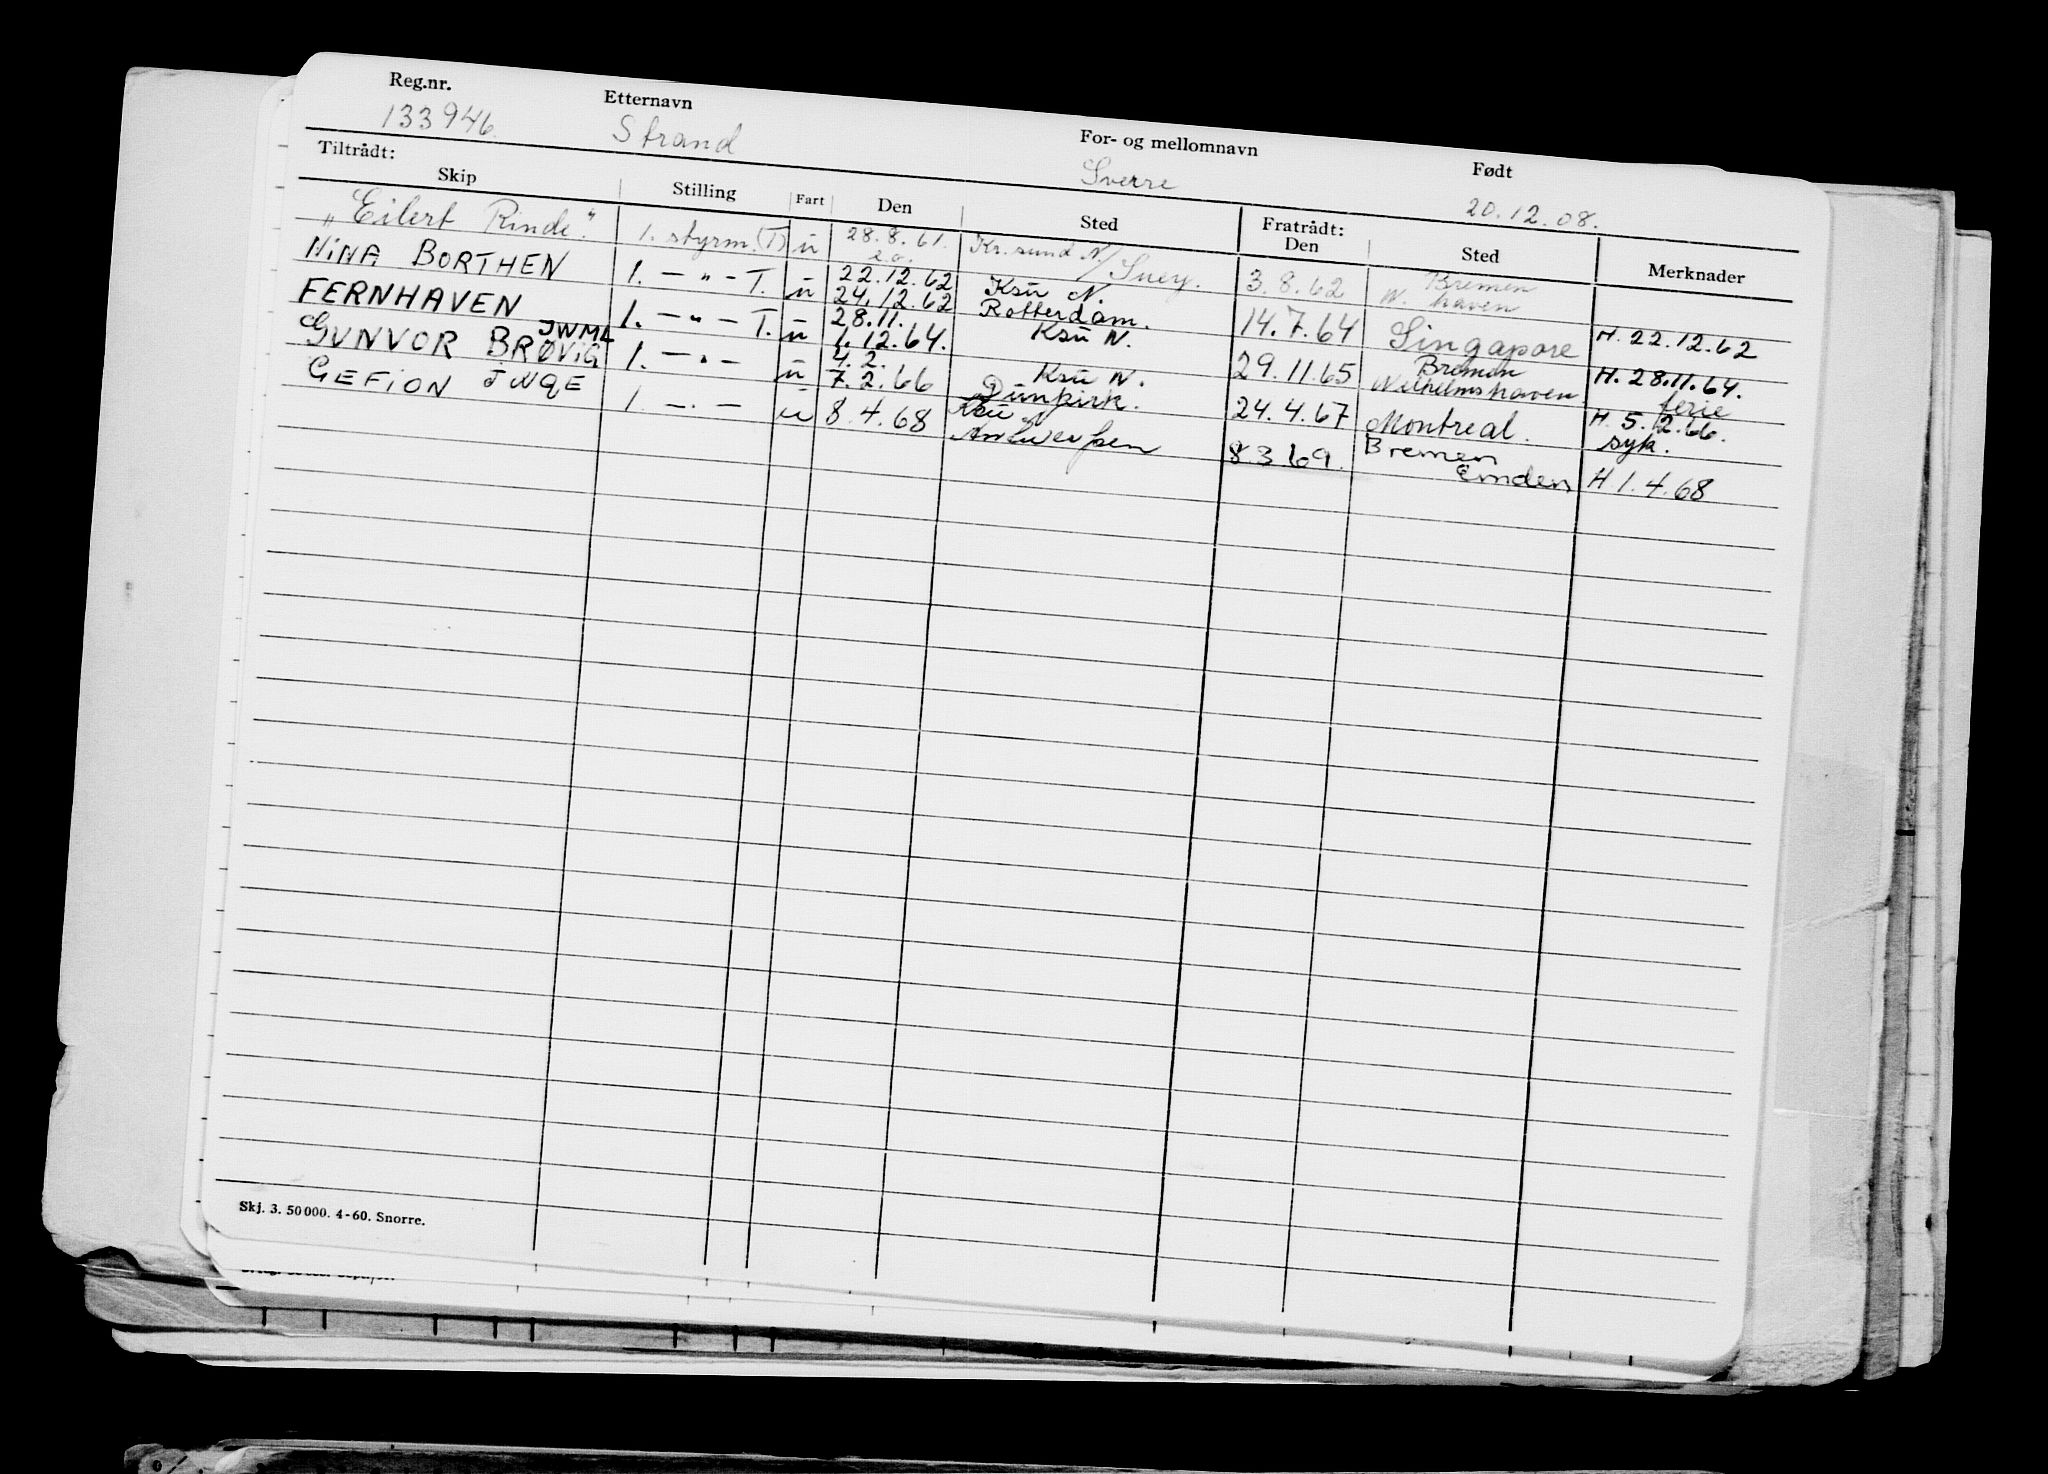 Reg.nr. Etternavn For- og mellomnavn Født
133946. Strand Sverre 20.12.08.
Tiltrådt: Fratrådt:
Skip Stilling Fart Den Sted Den Sted Merknader
"Eilert Rinde". 1. styrm. (T) u 28.8.61. Kr.sund N./Suez. 3.8.62 Bremen
20. W. haven
NINA BORTHEN 1. — " — T. u 22.12.62 Ksu N. 14.7.64 Singapore H. 22.12.62
24.12.62 Rotterdam.
FERNHAVEN JWML 1. — " — T. u 28.11. Ksu N. 29.11.65 Bremen H. 28.11.64.
1.12.64. Wilhelmshaven ferie
GUNVOR BRØVIG 1. — " — u 4.2. Ksu N. 24.4.67 Montreal. H. 5.2.66.
7.2.66 Dunkirk. syk.
GEFION JNQE 1. — " — u 8.4.68 Ksu N 8 3 69. Bremen H 1.4.68
Antwerpen Emden
Skj. 3. 50 000. 4-60. Snorre.